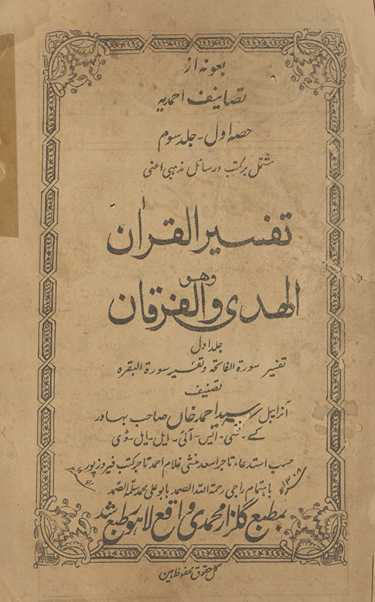 بعونہ از
تصانیف احمدیہ
حصہ اول - جلد سوم
مشتمل بر کتب و رسائل مذہبی اعنی
تفسیر القرآن
وھو
الھدی والفرقان
جلد اول
تفسیر سورۃ الفاتحۃ و تفسیر سورۃ البقرہ
تصنیف
آنرایبل سید احمد خان صاحب بہادر
کے - سی - ایس - آئی - ایل - ایل - ڈی
حسب استدعاء تاجر اسعد منشی غلام احمد تاجر کتب فیروزپور
باہتمام راجی رحمۃ اللہ الصمد بابو علی محمد
بمطبع گلزار محمدی واقع لاہور طبع شد
کل حقوق محفوظ ہین